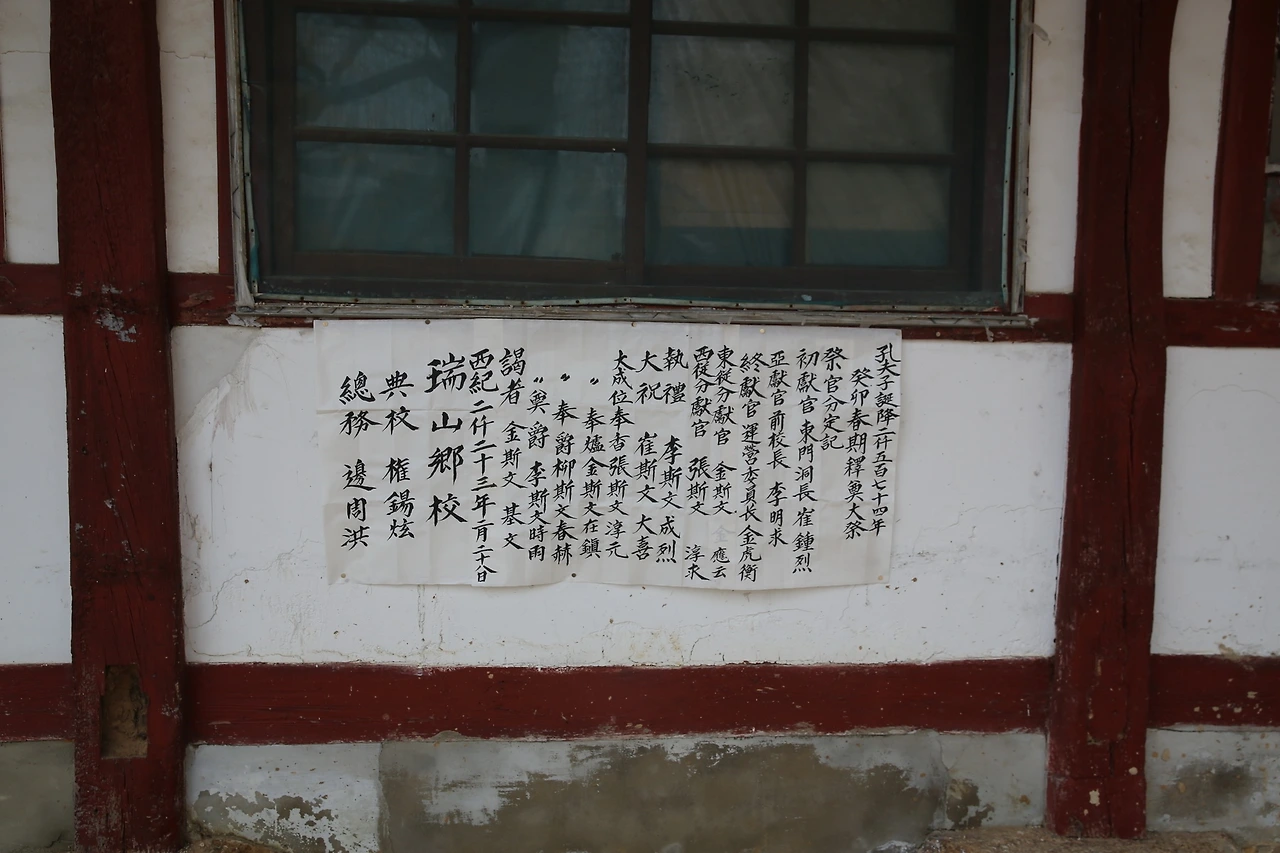 孔夫子誕降二仟五百七十四年
癸卯春期釋奠大祭
祭官分定記
初獻官 東門洞長 崔鍾烈
亞獻官 前校長 李明求
終獻官 運營委員長 金虎衡
東從分獻官 金斯文 應云
西從分獻官 張斯文 淳求
執禮 李斯文 成烈
大祝 崔斯文 大喜
大成位奉香 張斯文 淳元
〃 奉爐 金斯文 在鎭
〃 奉爵 柳斯文 春赫
〃 奠爵 李斯文 時雨
謁者 金斯文 基文
西紀 二仟二十三年 二月 二十八日
瑞山鄕校
典校 權錫炫
總務 邊周洪